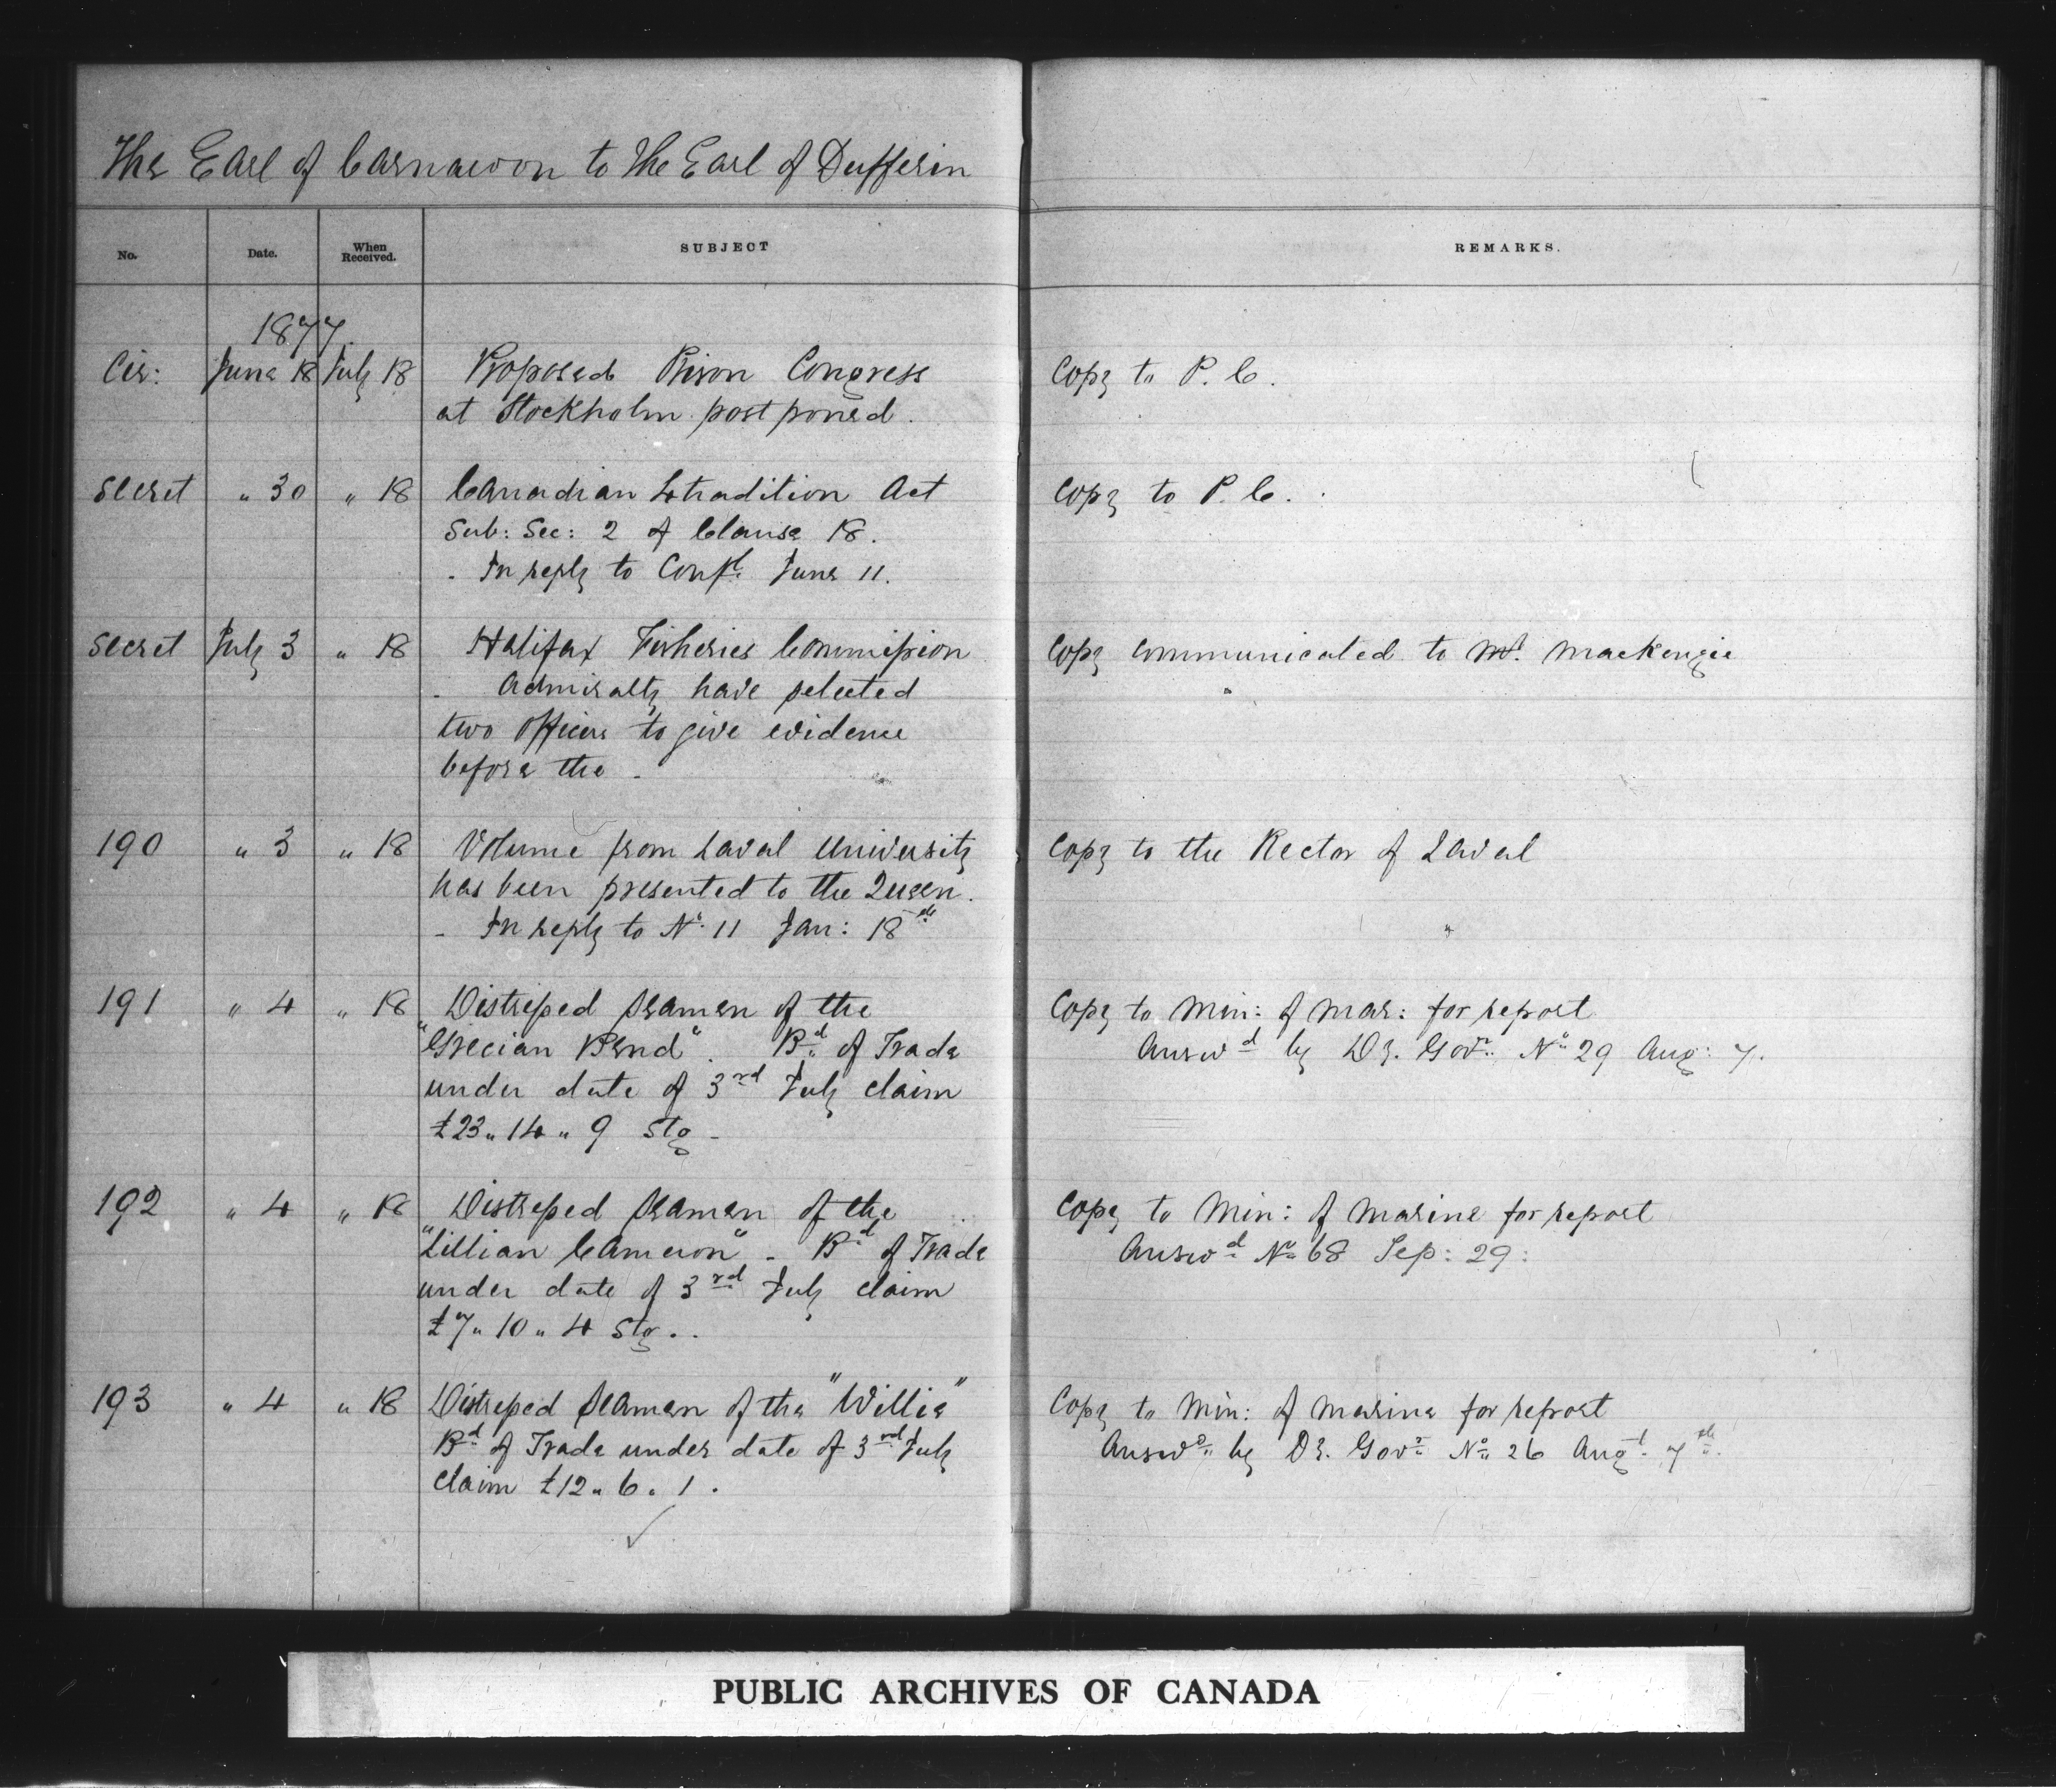 The Earl of Carnarvon to the Earl of Dufferin
No. Date. When Received. SUBJECT REMARKS.
1877
Cir: June 18 July 18 Proposed Prison Congress Copy to P. C.
at Stockholm postponed.
Secret " 30 " 18 Canadian Extradition Act Copy to P. C.
Sub: Sec: 2 of Clause 18.
- In reply to Conf^l. June 11.
Secret July 3 " 18 Halifax Fisheries Commission Copy communicated to M^r. Mackenzie
- Admiralty have selected
two Officers to give evidence
before the -
190 " 3 " 18 Volume from Laval University Copy to the Rector of Laval
has been presented to the Queen.
- In reply to N^o. 11 Jan: 18^th
191 " 4 " 18 Distressed Seamen of the Copy to Min: of Mar: for report
"Grecian Bend". B^d. of Trade Answ^d by Dy. Gov^r. N^o 29 Aug: 7.
under date of 3^rd July claim
£23 " 14 " 9 Stg -
192 " 4 " 18 Distressed Seamen of the Copy to Min: of Marine for report
"Lillian Cameron" - B^d of Trade Answ^d N^o 68 Sep: 29:
under date of 3^rd July claim
£7 " 10 " 4 Stg..
193 " 4 " 18 Distressed Seamen of the "Willie" Copy to Min: of Marine for report
B^d of Trade under date of 3^rd July Answ^d. by Dy. Gov^r N^o 26 Aug^t. 7^th.
claim £12 " 6 " 1.
PUBLIC ARCHIVES OF CANADA